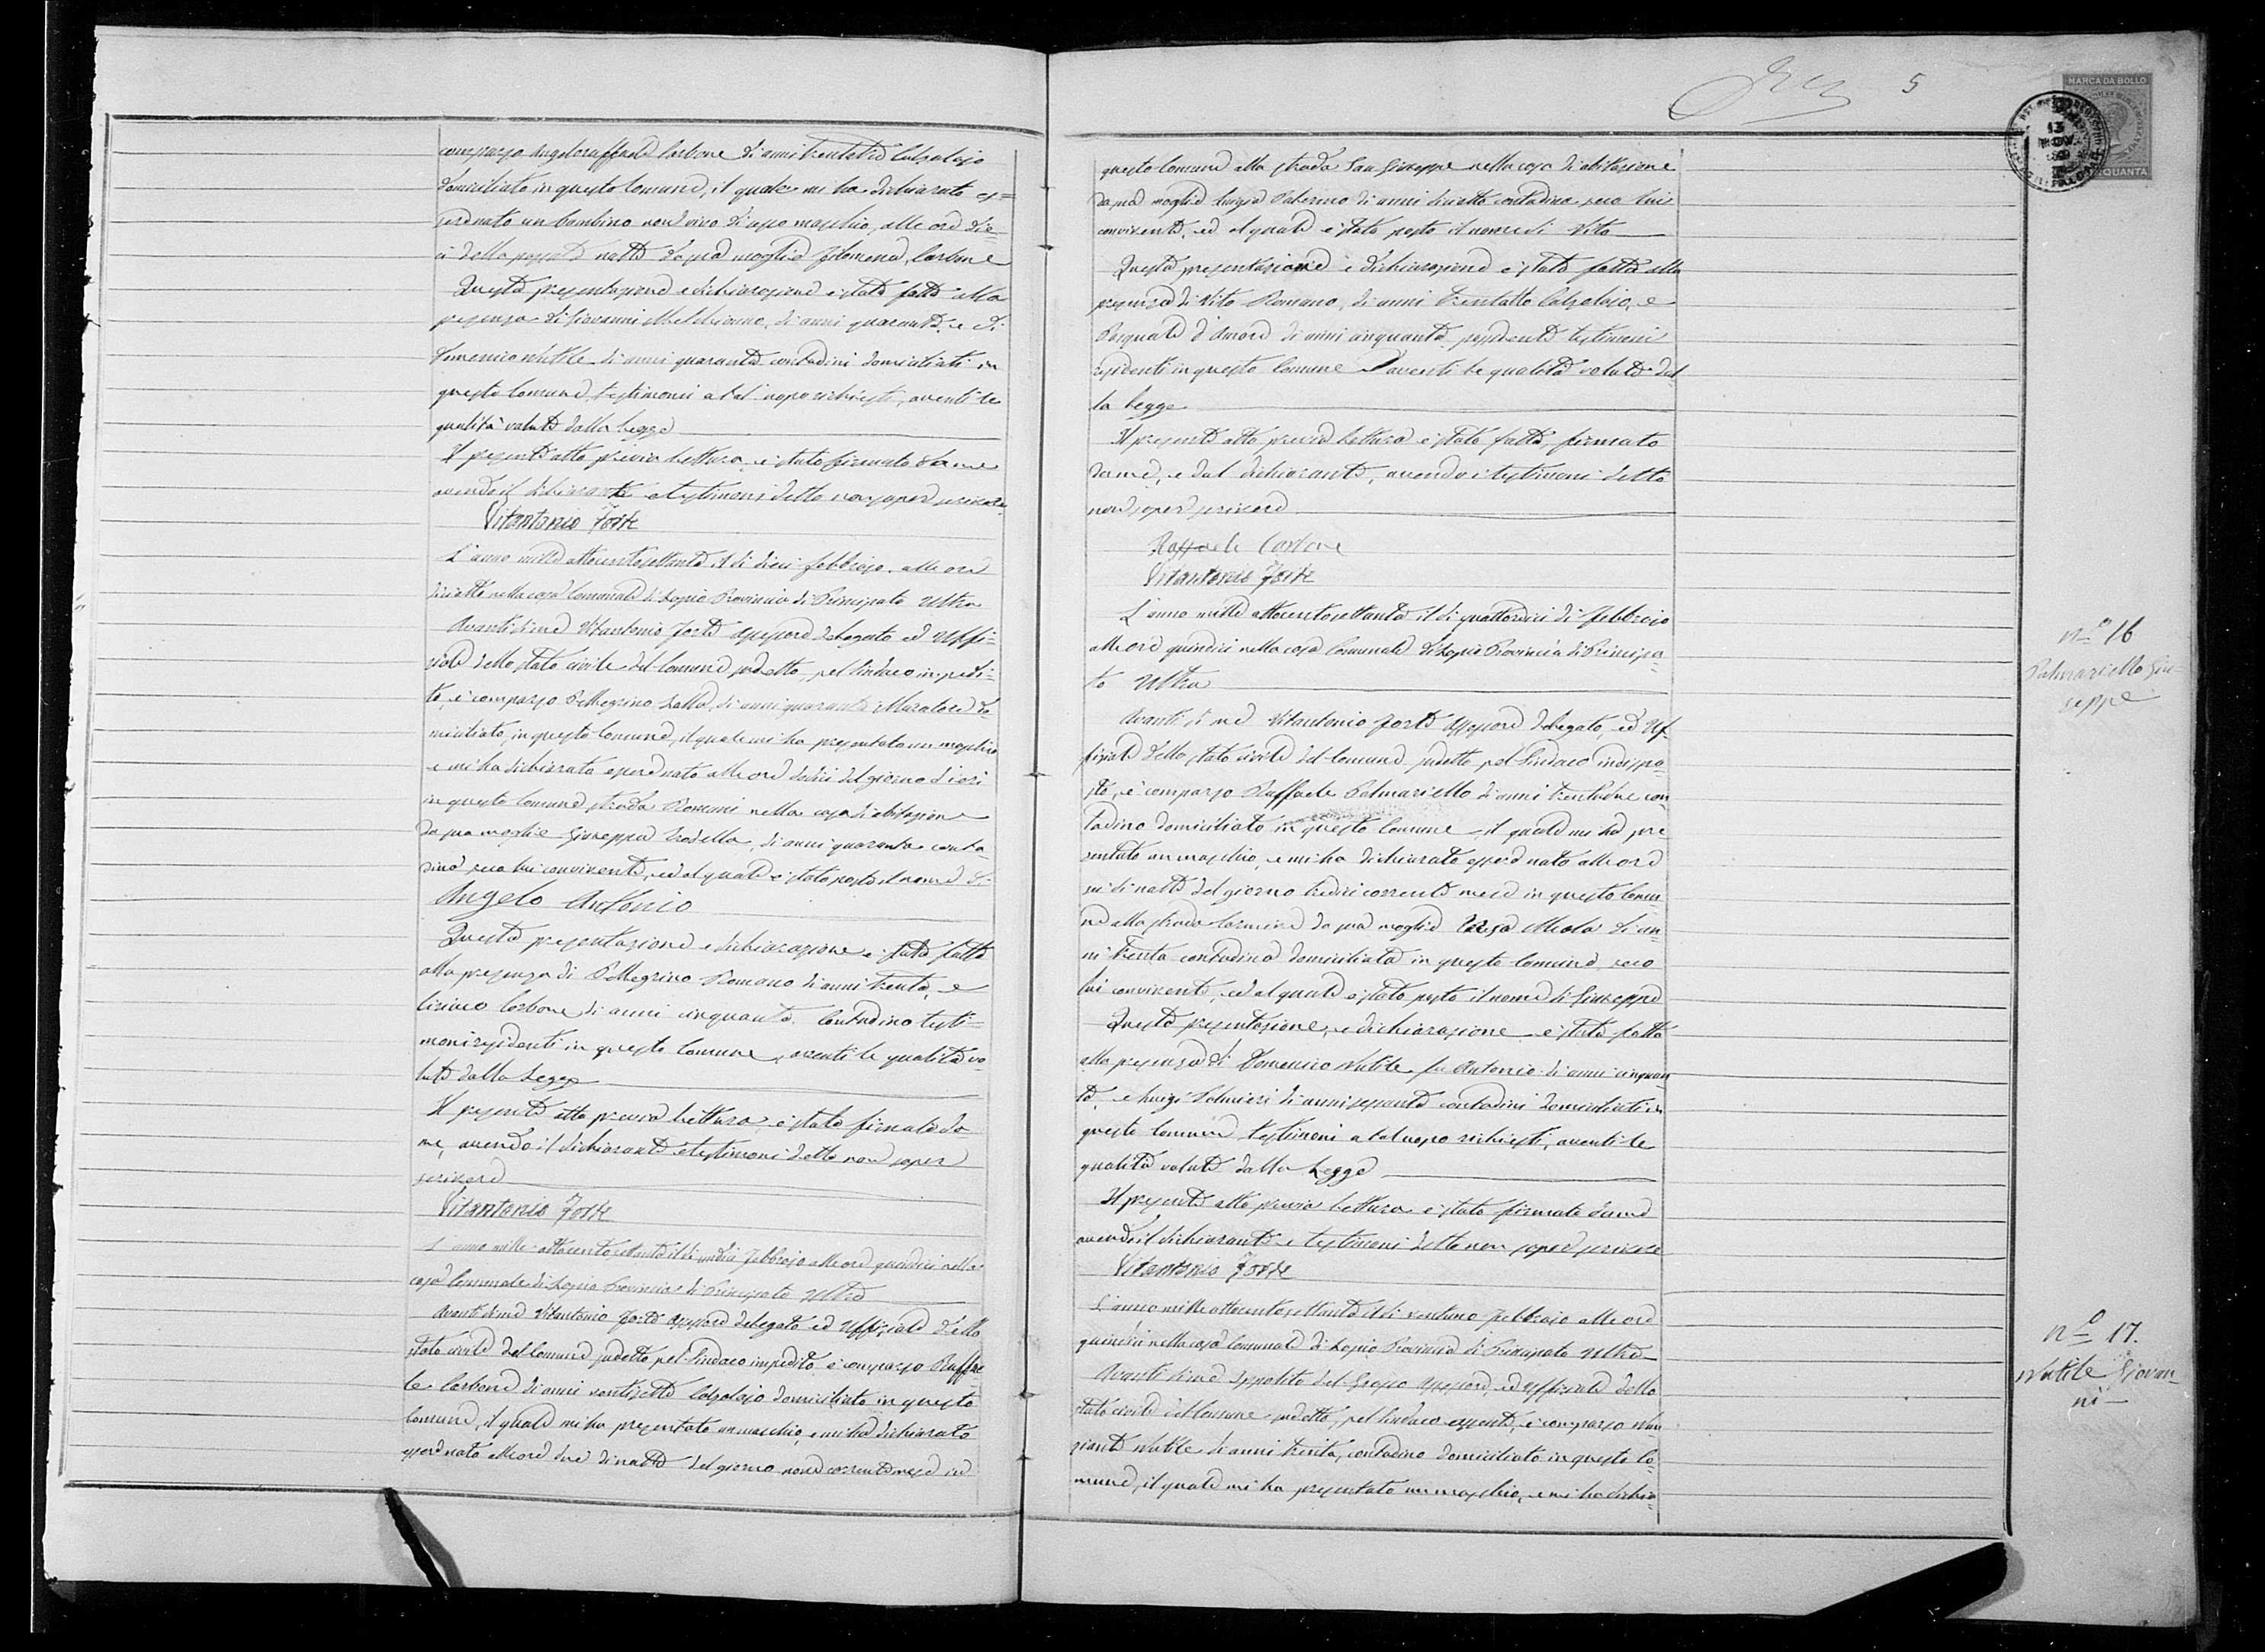 comparso Angeloraffaele Carbone di anni trentatre Calzolajo
domiciliato in questo Comune, il quale mi ha dichiarato es=
sere nato un bambino non vivo di sesso maschio, alle ore die=
ci della passata notte da sua moglie Filomena Carbone
Questa presentazione e dichiarazione è stata fatta alla
presenza di Giovanni Melchionno, di anni quaranta, e di
Domenico Nutile di anni quaranta contadini domiciliati in
questo Comune, testimoni a tal uopo richiesti, aventi le
qualità volute dalla Legge
Il presente atto previa lettura è stato firmato da me
avendo il dichiarante e testimoni detto non sapere scrivere
Vitantonio Forte
L'anno mille ottocentosettanta il di dieci febbrajo alle ore
diciotto nella casa Comunale di Lapio Provincia di Principato Ultra
Avanti di me Vitantonio Forte Assessore delegato ed Uffi=
ziale dello stato civile del Comune sudetto, pel Sindaco impedi=
to, è comparso Pellegrino di anni quaranta Muratore do=
miciliato in questo Comune, il quale mi ha presentato un maschio
e mi ha dichiarato essere nato alle ore dodici del giorno di ieri
in questo Comune strada Romani nella casa di abitazione
da sua moglie Giuseppa di anni quaranta conta=
dina seco lui convivente, ed al quale è stato posto il nome di
Angelo Antonio
Questa presentazione e dichiarazione è stata fatta
alla presenza di Pellegrino Romano di anni trenta, e
Carbone di anni cinquanta Contadino testi=
moni residenti in questo Comune, aventi le qualità vo=
lute dalla Legge
Il presente atto previa lettura è stato firmato da
me, avendo il dichiarante e testimoni detto non saper
scrivere
Vitantonio Forte
L'anno mille ottocento settanta il di undici febbrajo alle ore quindici nella
casa Comunale di Lapio Provincia di Principato Ultra
Avanti di me Vitantonio Forte Assessore delegato ed Uffiziale dello
stato civile del Comune sudetto pel Sindaco impedito è comparso Raffae
le Carbone di anni ventisette Calzolajo domiciliato in questo
Comune, il quale mi ha presentato un maschio, e mi ha dichiarato
essere nato alle ore due di notte del giorno nove corrente mese in
5
MARCA DA BOLLO
13
NOV.
CINQUANTA
questo Comune alla strada San Giuseppe nella casa di abitazione
da sua moglie Luigia di anni diciotto contadina seco lui
convivente, ed al quale è stato posto il nome di Vito
Questa presentazione e dichiarazione è stata fatta alla
presenza di Vito Romano, di anni trentotto Calzolajo, e
Pasquale d'Amore di anni cinquanta possidente testimoni
residenti in questo Comune aventi le qualità volute dal
la Legge
Il presente atto previa lettura è stato fatto, firmato
da me, e dal dichiarante, avendo i testimoni detto
non saper scrivere
Raffaele Carbone
Vitantonio Forte
L'anno mille ottocentosettanta il di quattordici di febbrajo
alle ore quindici nella casa Comunale di Lapio Provincia di Principa=
to Ultra
Avanti di me Vitantonio Forte Assessore delegato, ed Uf=
fiziale dello stato civile del Comune sudetto pel Sindaco indispo=
sto, è comparso Raffaele Palmariello di anni trentadue con
tadino domiciliato in questo Comune il quale mi ha pre
sentato un maschio, e mi ha dichiarato essere nato alle ore
sei di notte del giorno tredici corrente mese in questo Comu=
ne alla strada Carmine da sua moglie Teresa Meola di an=
ni trenta contadina domiciliata in questo Comune, seco
lui convivente, ed al quale è stato posto il nome di Giuseppe
Questa presentazione, e dichiarazione è stata fatta
alla presenza di Domenico Nutile fu Antonio di anni cinquan
ta, e Luigi di anni sessanta contadini domiciliati in
questo Comune testimoni a tal uopo richiesti, aventi le
qualità volute dalla Legge
Il presente atto previa lettura è stato firmato da me
avendo il dichiarante e testimoni detto non saper scrivere
Vitantonio Forte
L'anno mille ottocento settanta il di ventuno febbrajo alle ore
quindici nella casa Comunale di Lapio Provincia di Principato Ultra
Avanti di me Ippolito del Grosso Assessore, ed Uffiziale dello
stato civile del Comune sudetto, pel Sindaco assente, è comparso Nun
ziante Nutile di anni trenta, contadino domiciliato in questo Co=
mune, il quale mi ha presentato un maschio, e mi ha dichia=
N.º 16
Palmariello Giu=
seppe
N.º 17.
Nutile Giovan=
ni